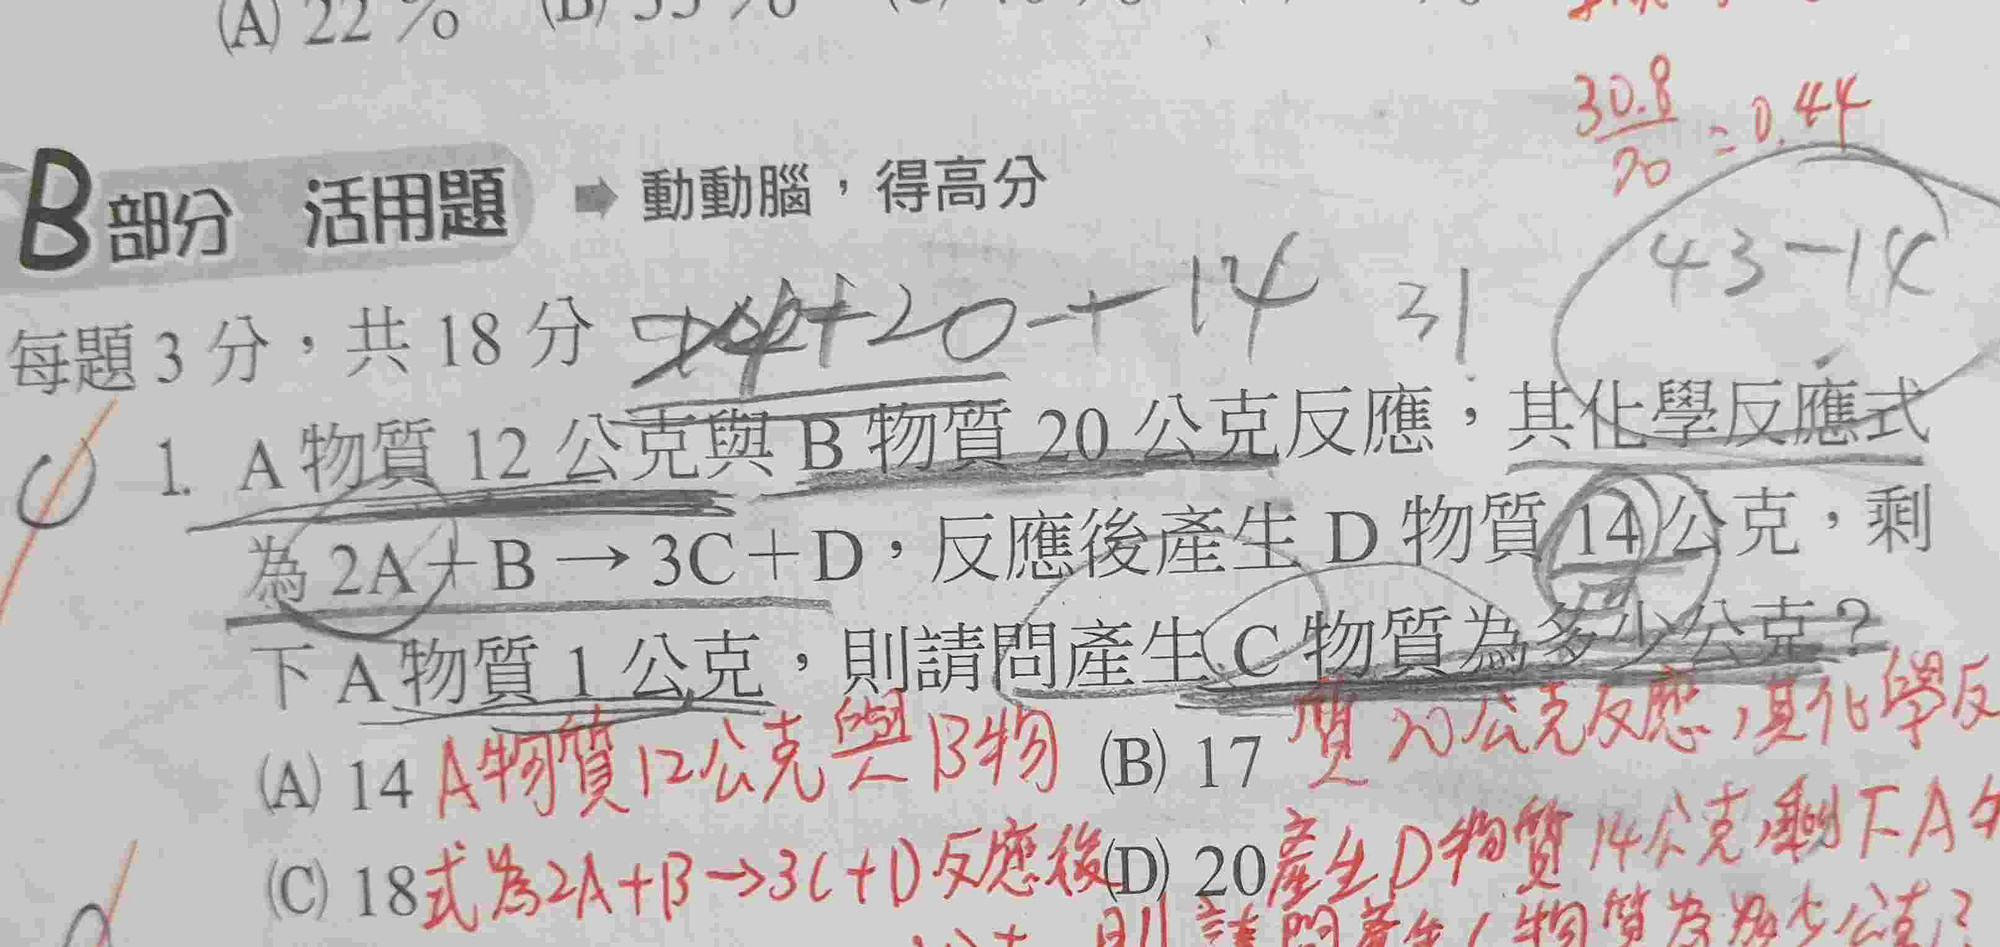 (A) 22 % (B) 33 %
30.8
70
= 0.44
B 部分 活用題 ➡ 動動腦，得高分
43-14
每題 3 分，共 18 分
+20 + 14 31
1. A 物質 12 公克與 B 物質 20 公克反應，其化學反應式
為 2A＋B → 3C＋D，反應後產生 D 物質 14 公克，剩
下 A 物質 1 公克，則請問產生 C 物質為多少公克？
(A) 14 (B) 17
A物質12公克與B物質20公克反應，其化學反
(C) 18 (D) 20
式為2A+B→3C+D反應後產生D物質14公克,剩下A
則請問產生C物質為多少公克?